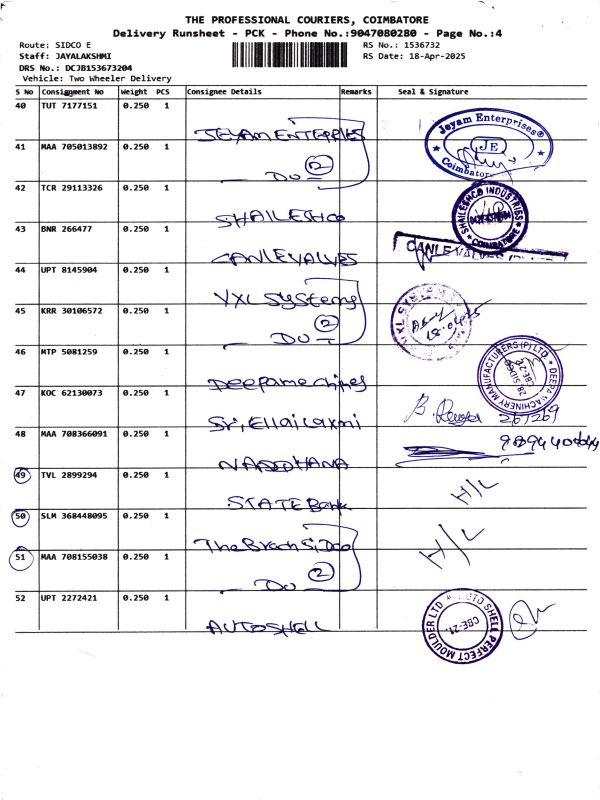 THE PROFESSIONAL COURIERS, COIMBATORE
Delivery Runsheet - PCK - Phone No.:9047080280 - Page No.:4
Route: SIDCO E
RS No.: 1536732
Staff: JAYALAKSHMI
RS Date: 18-Apr-2025
DRS No.: DCJB153673204
Vehicle: Two Wheeler Delivery
S No Consignment No Weight PCS Consignee Details Remarks Seal & Signature
40 TUT 7177151 0.250 1 JEYAM ENTERPRIES
Jeyam Enterprises® JE Coimbatore
41 MAA 705013892 0.250 1 — Do — 2
42 TCR 29113326 0.250 1 SHAILESHCO
SHAILESHCO INDUSTRIES COIMBATORE
43 BNR 266477 0.250 1 CANLEVALVES
CANLEVALVES
44 UPT 8145904 0.250 1 VXL Systems
45 KRR 30106572 0.250 1 — Do — 2
VXL SYSTEMS 18.04.25
46 MTP 5081259 0.250 1 Deepamachines
DEEPA MACHINERY MANUFACTURERS (P) LTD 28 SIDCO CBE-21
47 KOC 62130073 0.250 1 Sri, Ellailaxmi
48 MAA 708366091 0.250 1
49 TVL 2899294 0.250 1 STATE Bank H/L
50 SLM 368448095 0.250 1 The Brach SiDco H/L
51 MAA 708155038 0.250 1 — Do — 2
52 UPT 2272421 0.250 1 AUTOSHELL
AUTO SHELL PERFECT MOULDER LTD CBE-21.